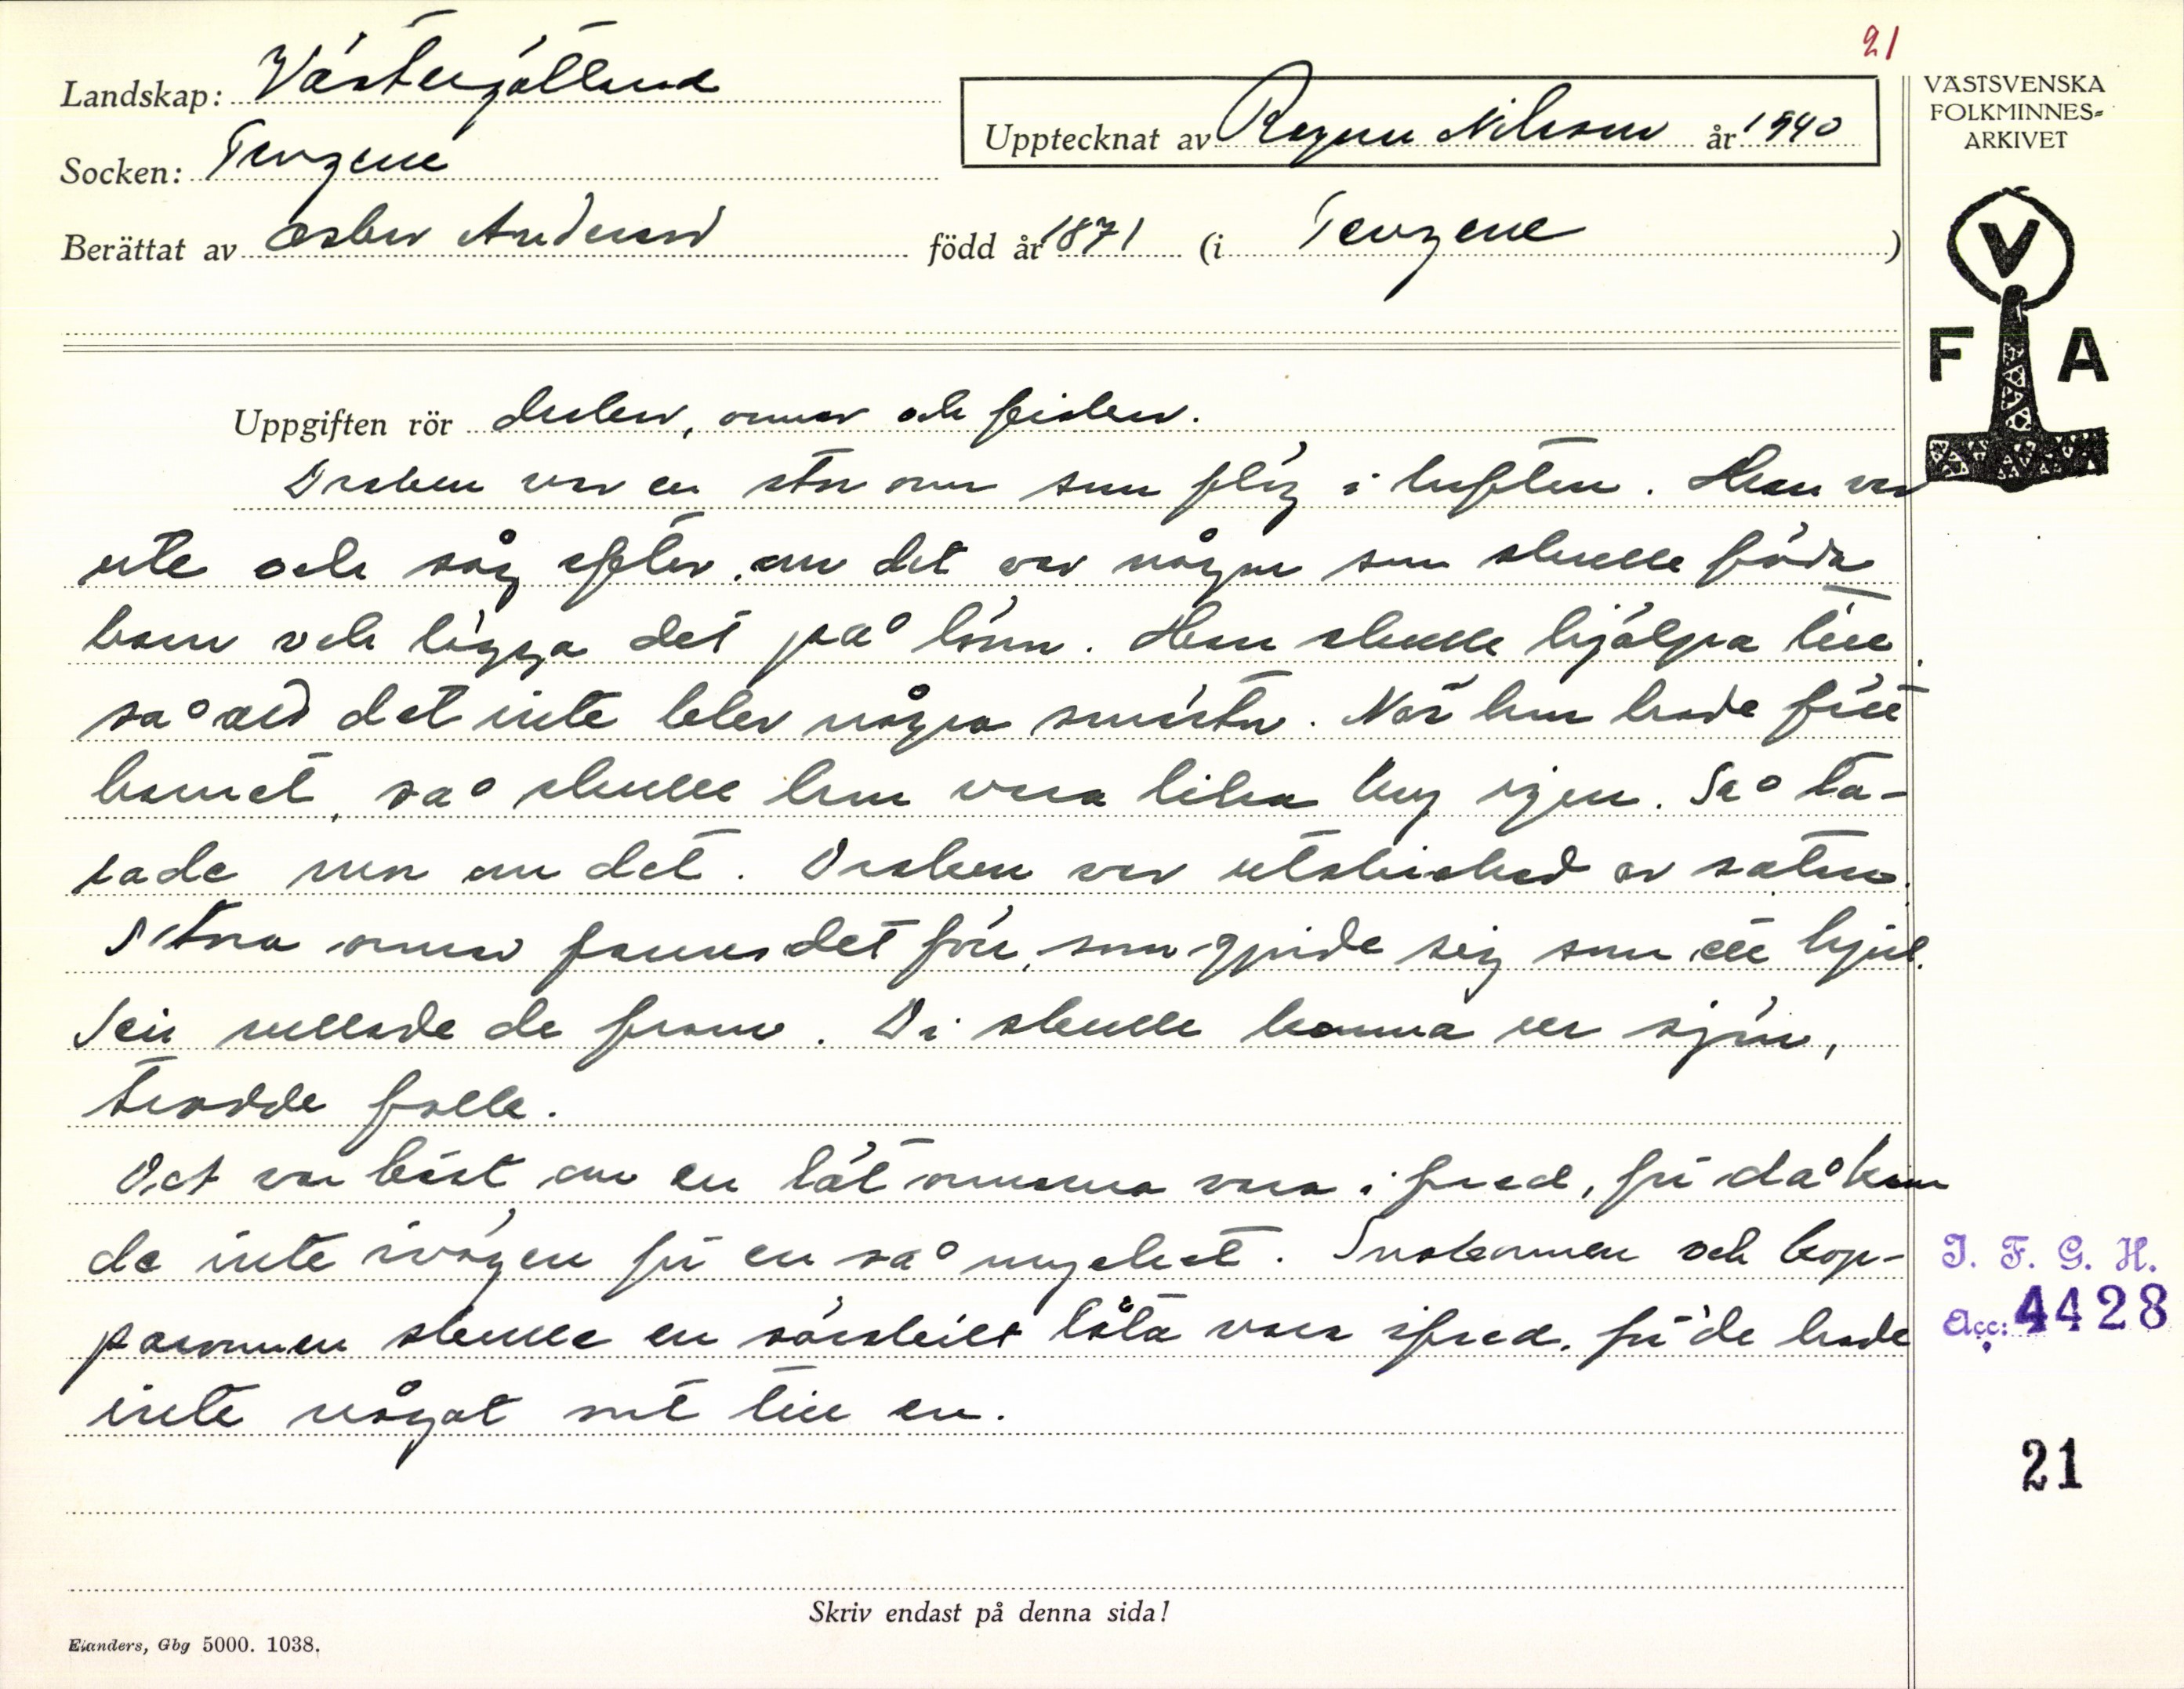 21
Landskap: Västergötland
Upptecknat av Ragnar Nilsson år 1940
VÄSTSVENSKA
FOLKMINNES-
ARKIVET
Socken:
Berättat av Oskar Andersson född år 1871 (i )
V
F A
Uppgiften rör draken, ormar och fisken.
Draken var en stor orm som flög i luften. Han var
ute och såg efter om det var någon som skulle föda
barn och lägga det på lönn. Han skulle hjälpa till
så att det inte blev några smärtor. När hon hade fött
barnet, så skulle hon vara lika bra igen. Så ta-
lade mor om det. Draken var utskickad av satan.
Stora ormar fanns det förr, som gjorde sig som ett hjul.
Sen rullade de fram. Di skulle komma ur sjön,
trodde folk.
Det var bäst om en lät ormarna vara i fred, för då kom
de inte ivägen för en så mycket. Snokormen och kop-
parormen skulle en särskilt låta vara ifred, för de hade
inte något ont till en.
I. F. G. H.
Acc: 4428
21
Skriv endast på denna sida!
Elanders, Gbg 5000. 1038.